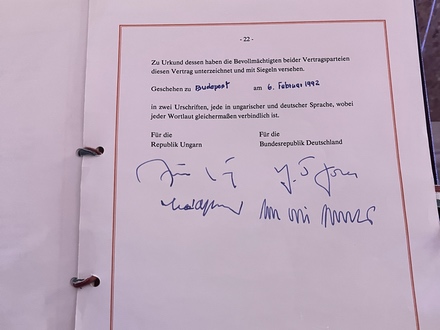 - 22 -
Zu Urkund dessen haben die Bevollmächtigten beider Vertragsparteien
diesen Vertrag unterzeichnet und mit Siegeln versehen.
Geschehen zu Budapest am 6. Februar 1992
in zwei Urschriften, jede in ungarischer und deutscher Sprache, wobei
jeder Wortlaut gleichermaßen verbindlich ist.
Für die Für die
Republik Ungarn Bundesrepublik Deutschland